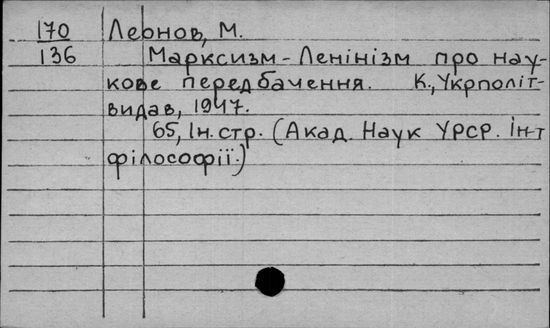 170 Леонов, М.
136 Марксизм-Ленінізм про нау-
кове передбачення. К., Укрполіт-
видав, 1947.
65, Ін. стр. (Акад. Наук УРСР. Ін-т
філософії.)